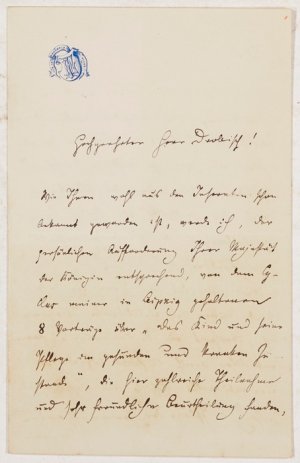 Hochgeehrter Herr Drobisch!
Wie Ihnen wohl aus den Inseraten schon
bekannt geworden ist, werde ich, der
persönlichen Aufforderung Ihrer Majestät
der Königin entsprechend, von dem Cy-
clus meiner in Leipzig gehaltenen
8 Vorträge über „das Kind und seine
Pflege im gesunden und kranken Zu-
stande", die hier zahlreiche Theilnahme
und sehr freundliche Beurtheilung fanden,